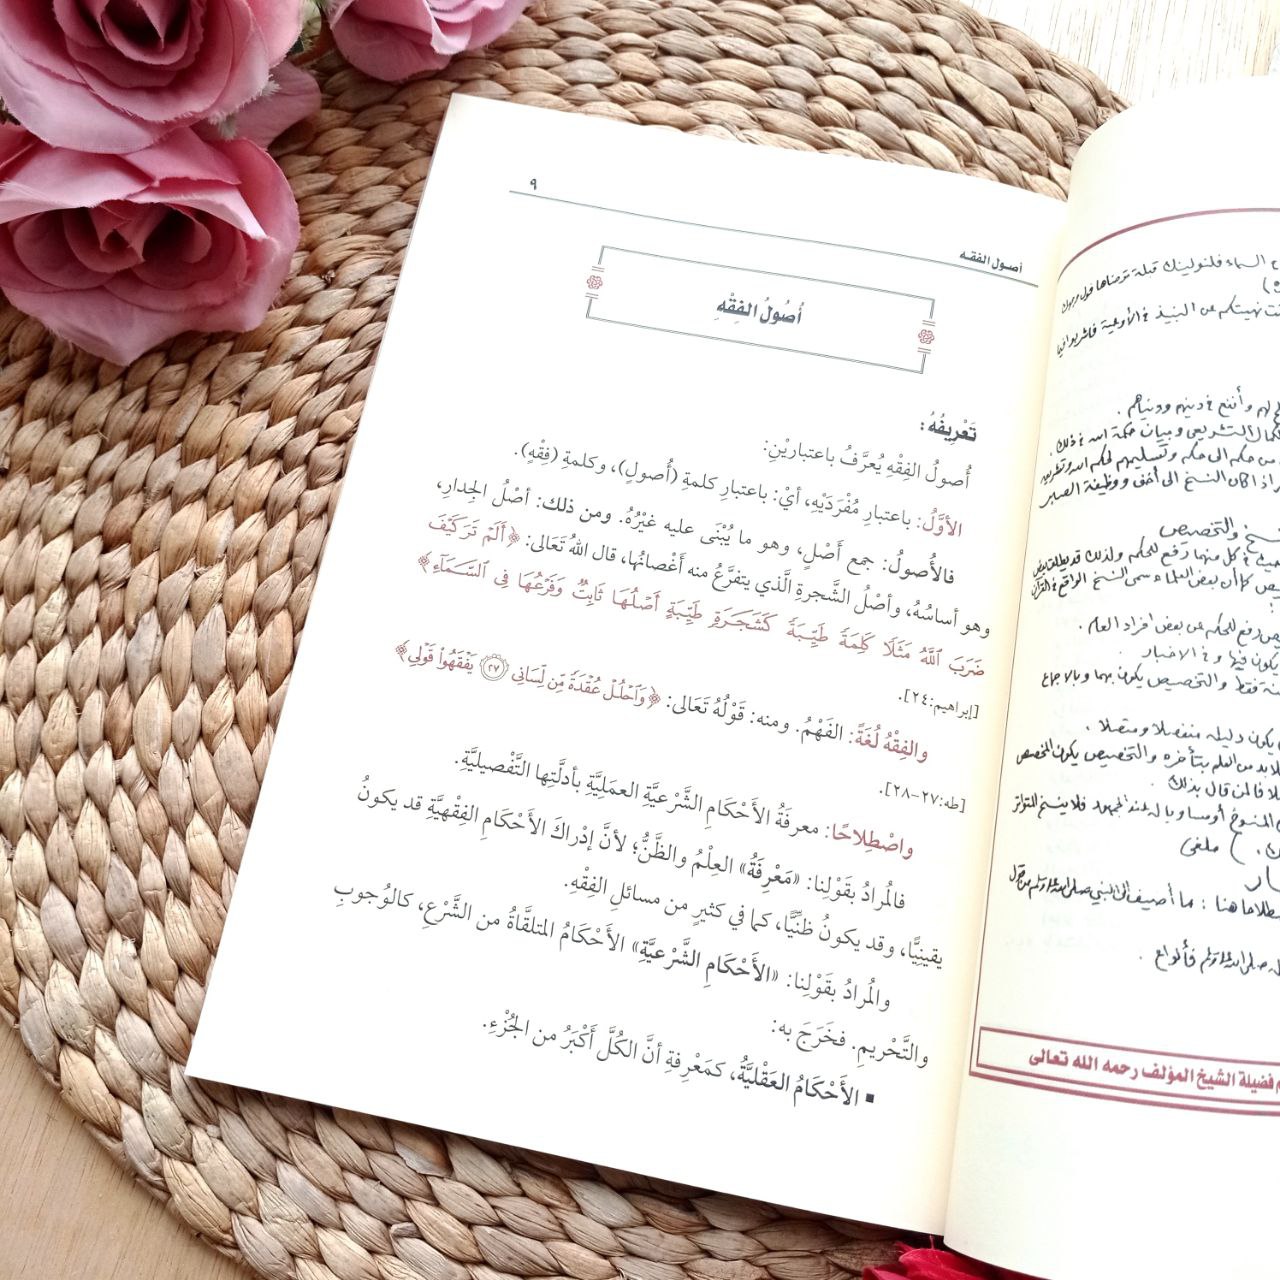 أصول الفقه ٩
أُصُولُ الفِقْهِ
تَعْرِيفُهُ:
أُصولُ الفِقْهِ يُعرَّفُ باعتباريْنِ:
الأوَّلُ: باعتبارِ مُفْرَدَيْهِ، أيْ: باعتبارِ كلمةِ (أُصولٍ)، وكلمةِ (فِقْهٍ).
فالأُصولُ: جمع أَصْلٍ، وهو ما يُبْنَى عليه غيْرُهُ. ومن ذلك: أصْلُ الجِدارِ،
وهو أساسُهُ، وأصْلُ الشَّجرةِ الَّذي يتفرَّعُ منه أغْصانُها، قال اللهُ تَعَالى: ﴿أَلَمْ تَرَ كَيْفَ
ضَرَبَ ٱللَّهُ مَثَلًا كَلِمَةً طَيِّبَةً كَشَجَرَةٍ طَيِّبَةٍ أَصْلُهَا ثَابِتٌ وَفَرْعُهَا فِى ٱلسَّمَآءِ﴾
[إبراهيم:٢٤].
والفِقْهُ لُغَةً: الفَهْمُ. ومنه: قَوْلُهُ تَعَالى: ﴿وَٱحْلُلْ عُقْدَةً مِّن لِّسَانِى ٢٧ يَفْقَهُوا۟ قَوْلِى﴾
[طه:٢٧-٢٨].
واصْطِلاحًا: معرفَةُ الأَحْكامِ الشَّرْعيَّةِ العمَلِيَّةِ بأدلَّتِها التَّفْصيليَّةِ.
فالمُرادُ بقَوْلِنا: «مَعْرِفَةُ» العِلْمُ والظَّنُّ؛ لأنَّ إدْراكَ الأَحْكامِ الفِقْهيَّةِ قد يكونُ
يقينِيًّا، وقد يكونُ ظنِّيًّا، كما في كثيرٍ من مسائلِ الفِقْهِ.
والمُرادُ بقَوْلِنا: «الأَحْكامِ الشَّرْعيَّةِ» الأَحْكامُ المتلقَّاةُ من الشَّرْعِ، كالوُجوبِ
والتَّحْريمِ. فخَرَجَ به:
▪ الأَحْكامُ العَقْليَّةُ، كمَعْرِفةِ أنَّ الكُلَّ أَكْبَرُ من الجُزْءِ.
السماء فلنولينك قبلة ترضاها فول وجهك
نهيتكم عن النبيذ في الأوعية فاشربوا فيما
لهم وأنفع في دينهم ودنياهم.
التشريعي وبيان حكمة الله في ذلك.
من حكم الى حكم وتسليمهم لحكم الله
اذا كان النسخ الى أخف ووظيفة الصبر
والتخصيص
في كل منهما رفع للحكم ولذلك قد يطلق
كما أن بعض العلماء سمى النسخ الواقع في القرآن
رفع للحكم عن بعض افراد العام.
يكون فيها وفي الاخبار.
فقط والتخصيص يكون بهما وبالاجماع
يكون دليله منفصلا ومتصلا.
لابد من العلم بتأخره والتخصيص يكون المخصص
لمن قال بذلك.
المنسوخ أو مساويا له عند الجمهور فلا ينسخ المتواتر
ملغى
هنا: ما أضيف الى النبي صلى الله عليه وسلم من قول
صلى الله عليه وسلم فأنواع.
فضيلة الشيخ المؤلف رحمه الله تعالى